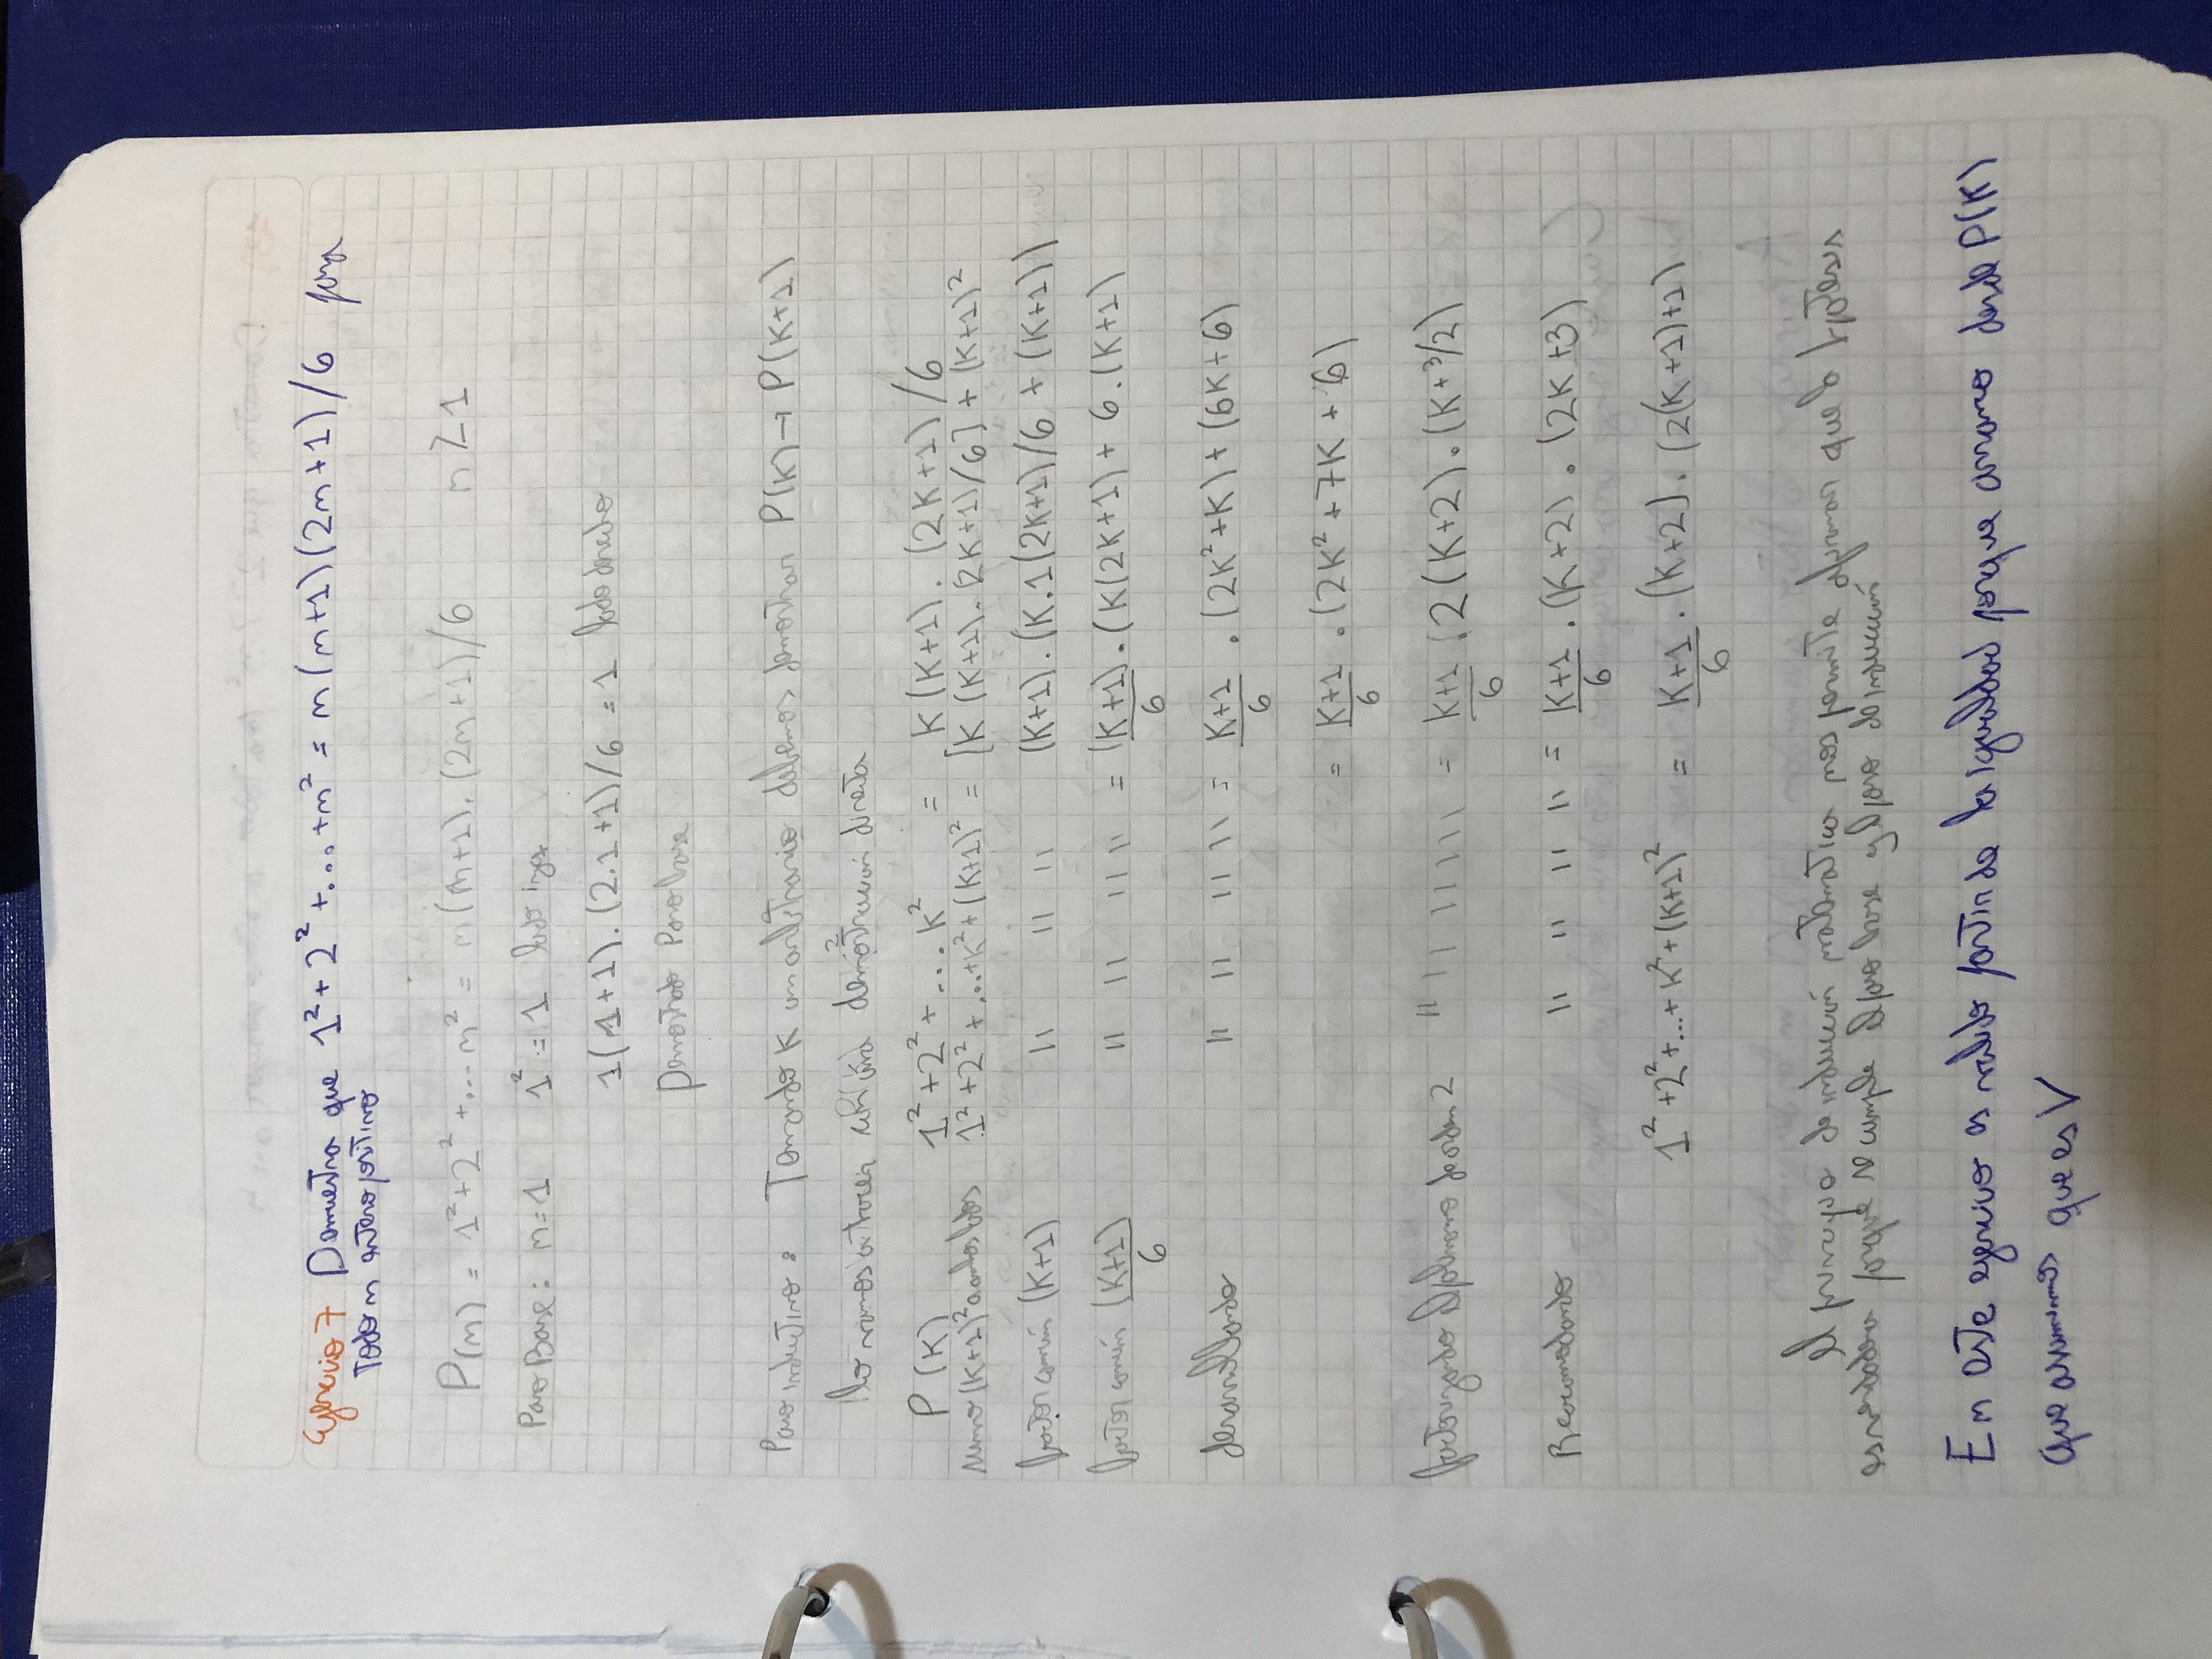 Ejercicio 7 Demuestra que 1² + 2² + ... + n² = n(n+1)(2n+1)/6 para
todo n entero positivo
P(n) = 1² + 2² + ... n² = n(n+1).(2n+1)/6 n ≥ 1
Paso Base: n=1 1² = 1 lado izq
1(1+1).(2.1+1)/6 = 1 lado derecho
Demostrado Paso base
Paso inductivo: Tomando K un arbitrario debemos demostrar P(K) → P(K+1)
lo vamos a hacer con una demostración directa
P(K) 1² + 2² + ... K² = K(K+1).(2K+1)/6
sumo (K+1)² a ambos lados 1² + 2² + ... + K² + (K+1)² = [K(K+1).(2K+1)/6] + (K+1)²
factor común (K+1) " " " (K+1).(K.1(2K+1)/6 + (K+1))
factor común (K+1)/6 " " " " = (K+1)/6 .(K(2K+1) + 6.(K+1)
desarrollando " " " " = K+1/6 .(2K²+K) + (6K+6)
= K+1/6 .(2K² + 7K + 6)
factorizando el polinomio de orden 2 " " " " " = K+1/6 .2(K+2).(K+3/2)
Reacomodando " " " " = K+1/6 .(K+2).(2K+3)
1² + 2² + ... + K² + (K+1)² = K+1/6 .(K+2).(2(K+1)+1)
el principio de inducción matemática nos permite afirmar que la hipótesis
es verdadera porque se cumple el paso base y el paso de inducción
En este ejercicio es valido partir de la igualdad porque arranco desde P(K)
que asumimos que es V